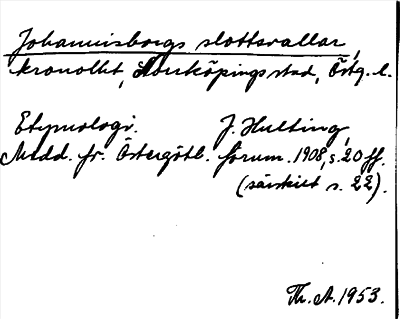 Johannisborgs slottsvallar,
kronollht, Norrköpings stad, Östg. l.
Etymologi. J. Hulting,
Medd. fr. Östergötl. fornm. 1908, s. 20 ff.
(särskilt s. 22).
Th. A. 1953.